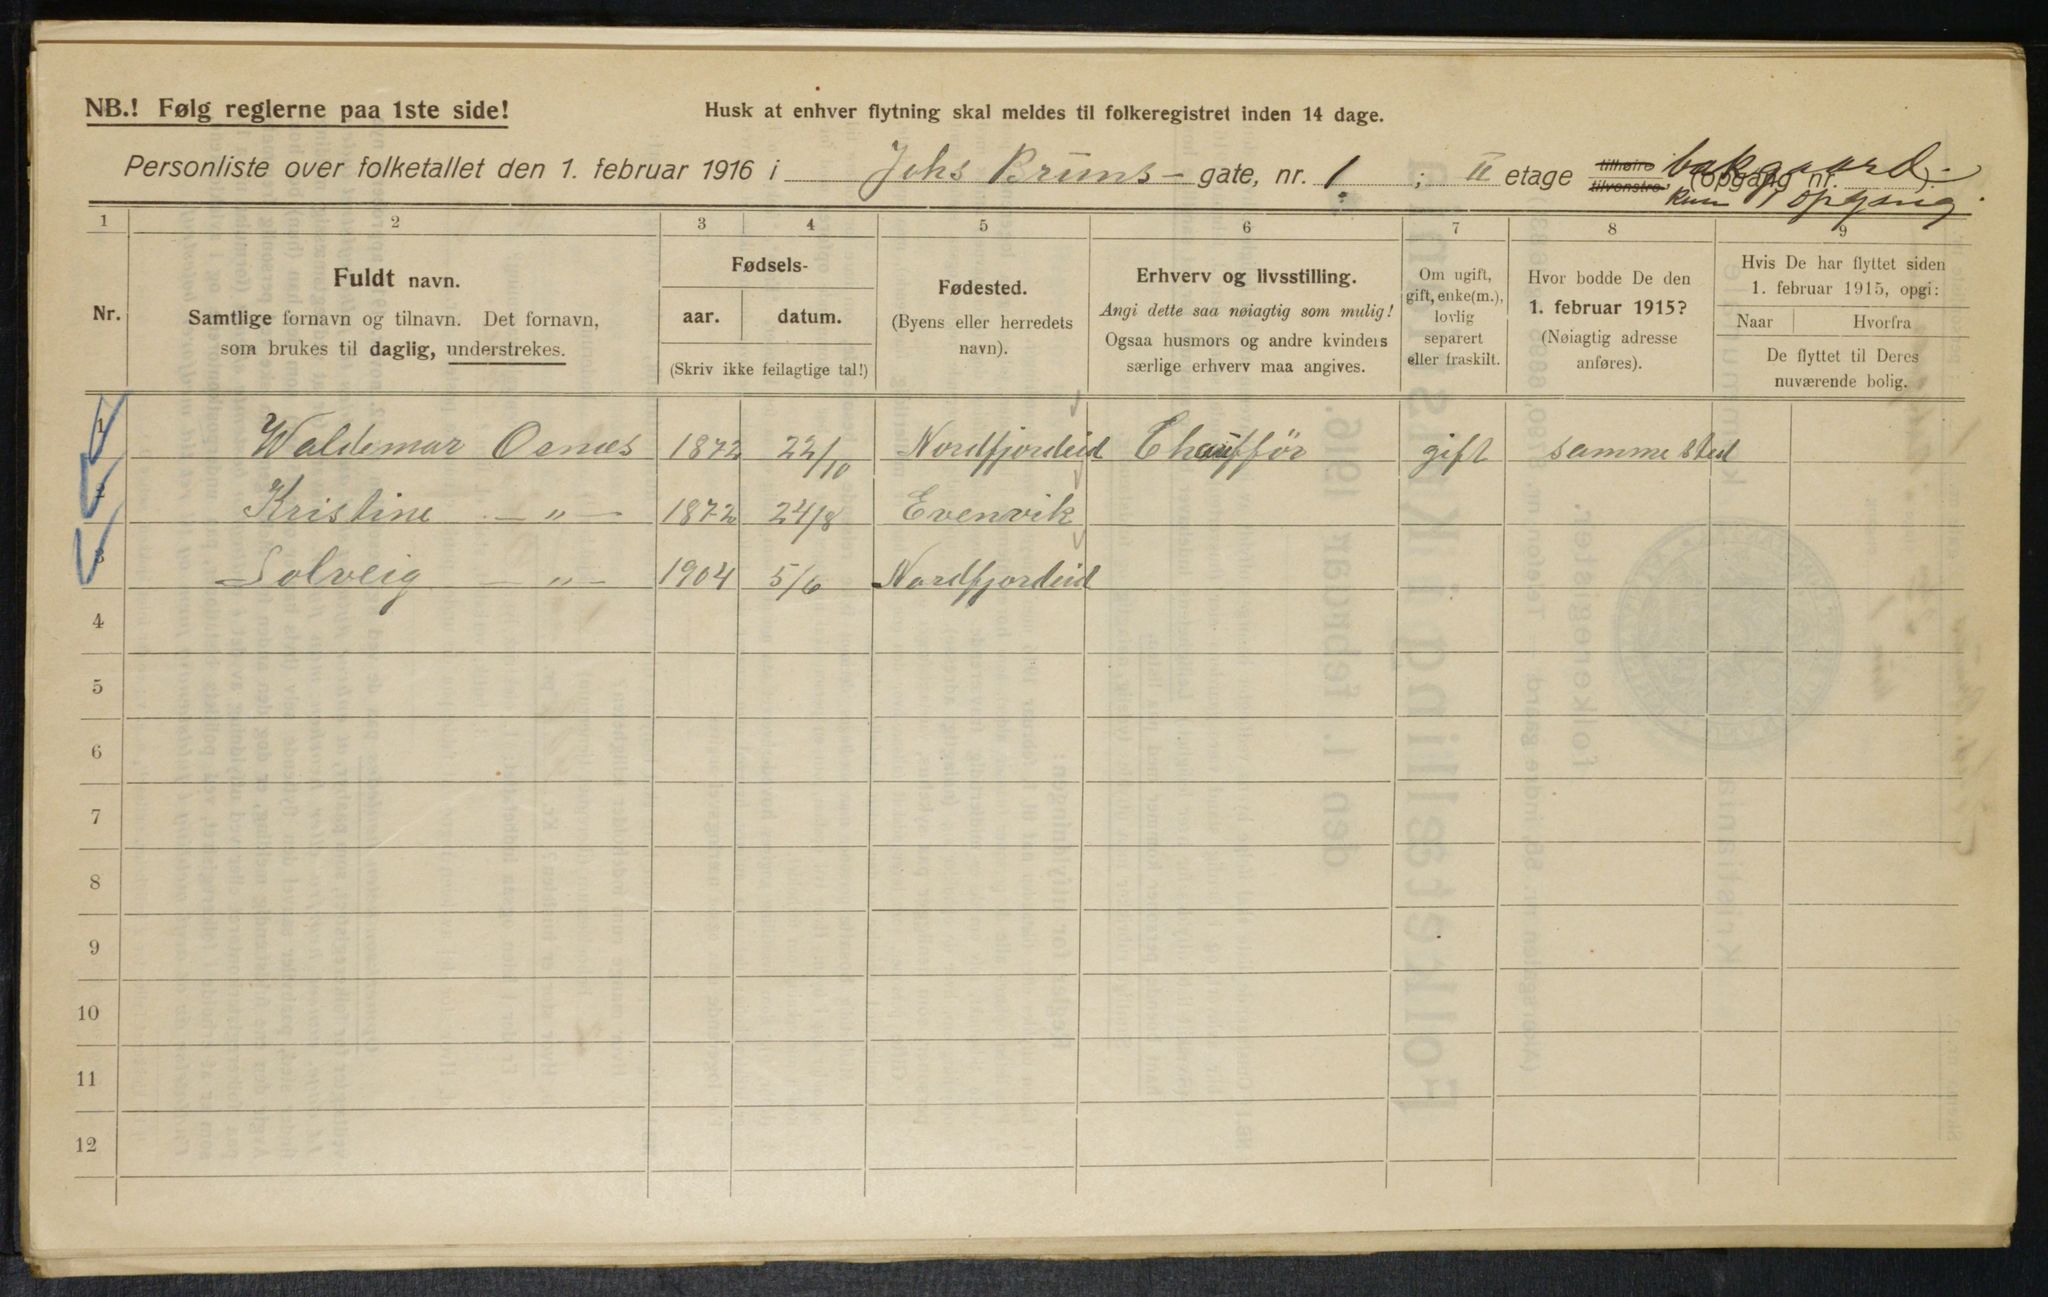 NB.! Følg reglerne paa 1ste side!
Husk at enhver flytning skal meldes til folkeregistret inden 14 dage.
Personliste over folketallet den 1. februar 1916 i Johs Bruns gate, nr. 1. ; II etage tilhøire tilvenstre (opgang nr. ). bakgaard. Kun 1 opgang.
1 2 3 4 5 6 7 8 9
Nr.
Fuldt navn.
Samtlige fornavn og tilnavn. Det fornavn,
som brukes til daglig, understrekes.
Fødsels-
aar. datum.
(Skriv ikke feilagtige tal!)
Fødested.
(Byens eller herredets
navn).
Erhverv og livsstilling.
Angi dette saa nøiagtig som mulig!
Ogsaa husmors og andre kvinders
særlige erhverv maa angives.
Om ugift,
gift, enke(m.),
lovlig
separert
eller fraskilt.
Hvor bodde De den
1. februar 1915?
(Nøiagtig adresse
anføres).
Hvis De har flyttet siden
1. februar 1915, opgi:
Naar Hvorfra
De flyttet til Deres
nuværende bolig.
1 Waldemar Osnes 1872 22/10 Nordfjordeid Chauffør gift samme sted
2 Kristine — " — 1872 24/8 Evenvik
3 Solveig — " — 1904 5/6 Nordfjordeid
4
5
6
7
8
9
10
11
12